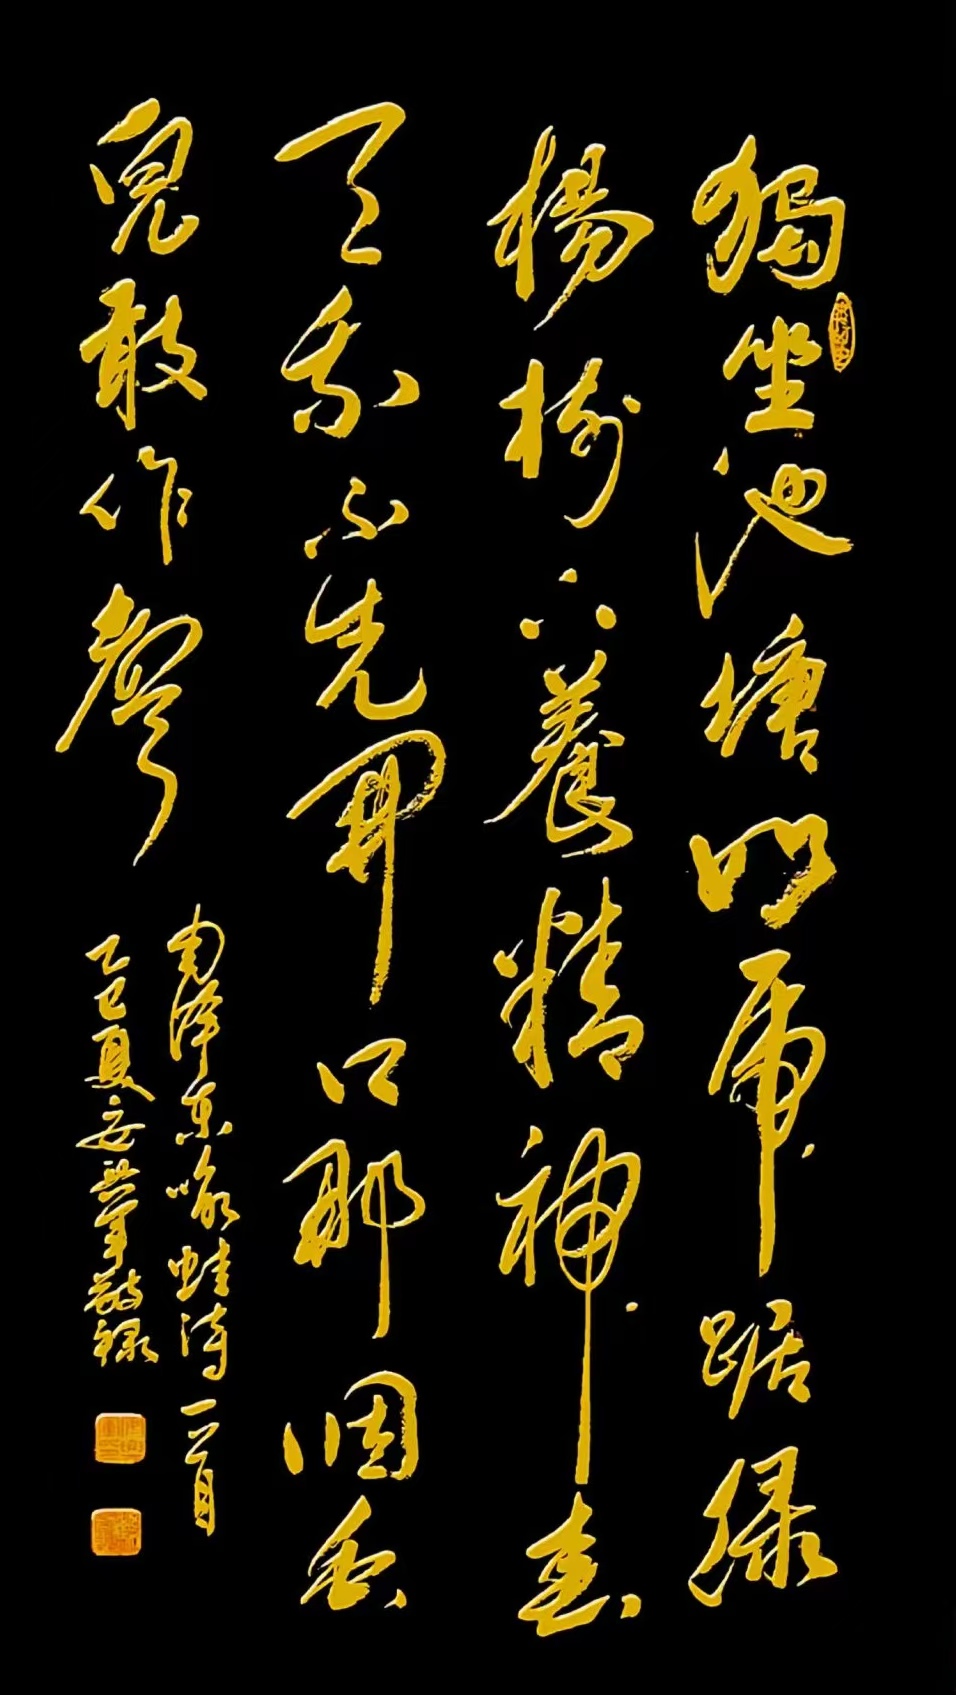 獨坐池塘如虎踞綠
楊樹下養精神春
來我不先開口那個虫
兒敢作聲
毛澤東咏蛙詩一首
乙巳夏安軍敬録